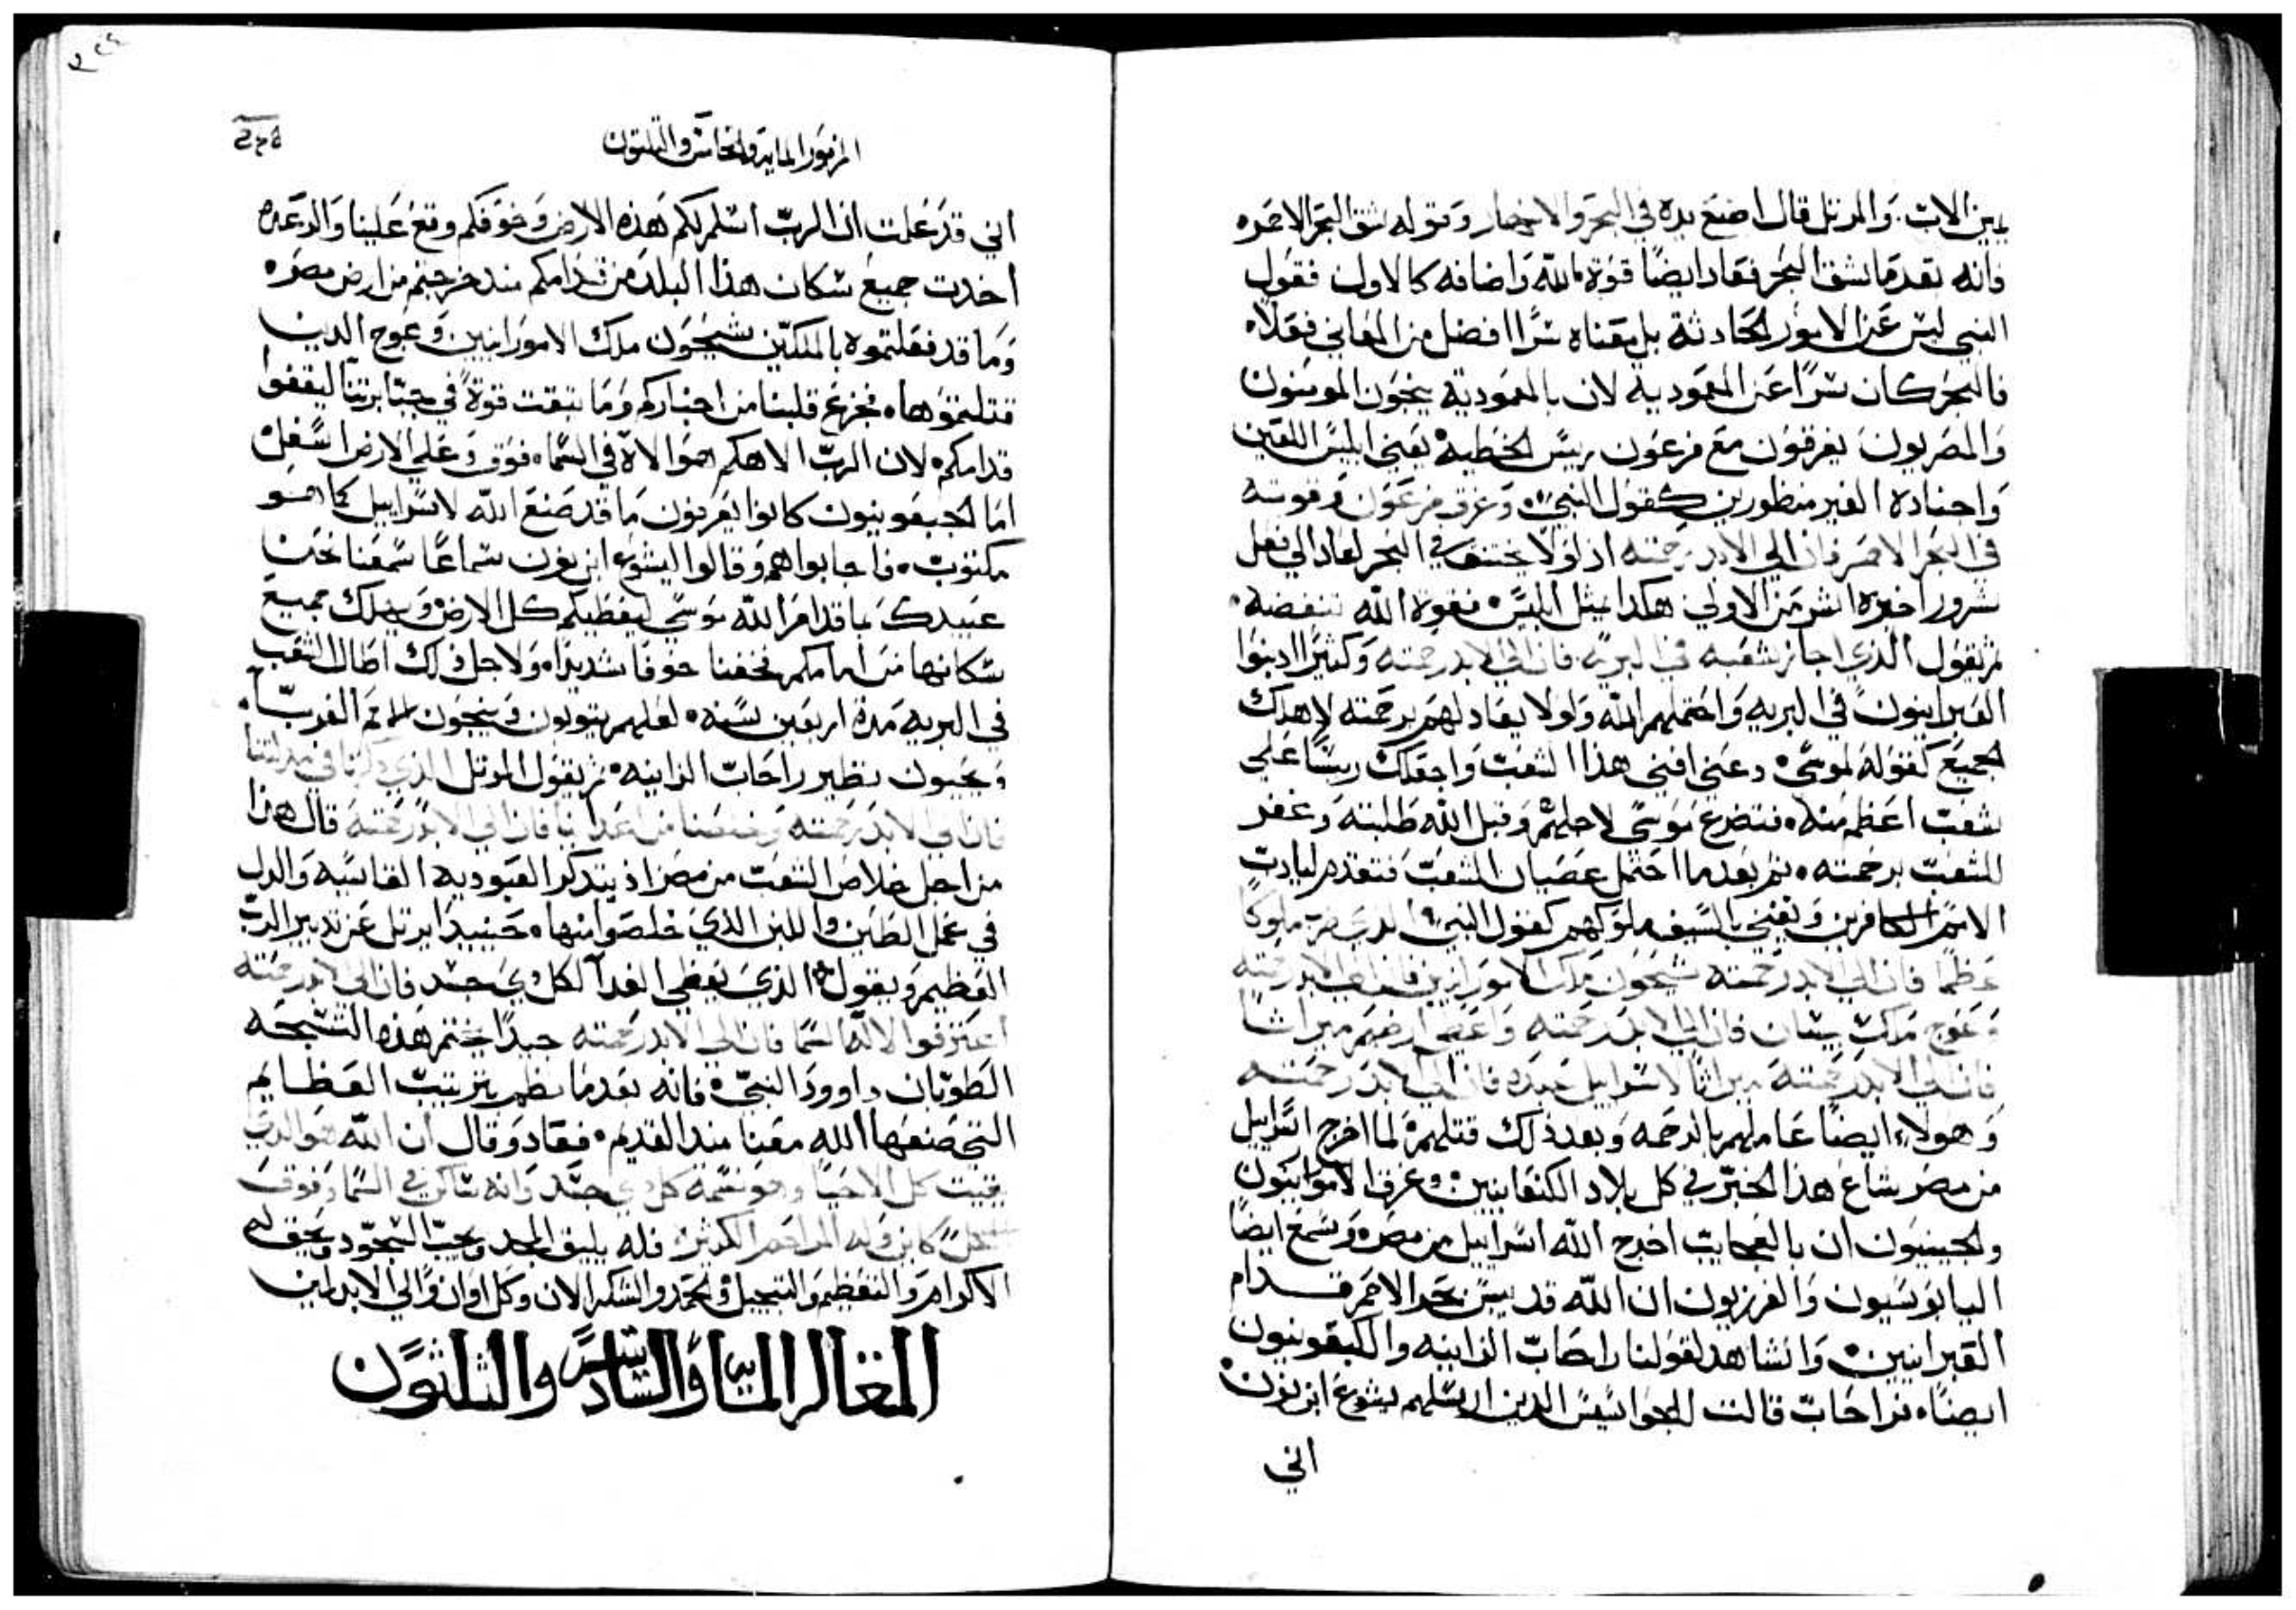 يمين الاب. والمرتل قال اضع يده في البحر والانهار وبقوله شق البحر الاحمر
وانه بعدما شق البحر فعاد ايضًا قوة الله واضافه كالاول فقول
النبي ليس عن الامور الحادثة بل معناه سرًا افضل من المعاني فعلاه
فالبحر كان سرًا عن المعمودية لان بالمعمودية ينجون المومنون
والمصريون يغرقون مع فرعون ريس الخطية يعني ابليس اللعين
واجناده الغير منظورين كقول النبي وغرق فرعون وقوته
في البحر الاحمر فان الي الابد رحمته اذ لولا يختنق في البحر لعاد الي فعل
شرور اخيره اشر من الاولي هكدا مثل ابليس بقوة الله تنفضه
ثم يقول الذي اجاز شعبه في البريه فان الي الابد رحمته وكثيرًا ادنبوا
العبرانيون في البريه واحتملهم الله ولولا يعاد لهم برحمته لاهلك
الجميع كقوله لموسي دعني افني هذا الشعب واجعلك ريسًا علي
شعب اعظم منه فتضرع موسي لاجلهم وقبل الله طلبته وغفر
للشعب برحمته ثم بعدما احتمل عصيان الشعب فتقدم ليادب
الامم الكافرين ويفني بالسيف ملوكهم كقول النبي الذي ضرب ملوكًا
عظما فان الي الابد رحمته سيحون ملك الامورانيين فان الي الابد رحمته
وعوج ملك بيسان فان الي الابد رحمته واعطي ارضهم ميراثًا
فان الي الابد رحمته ميراثًا لاسراييل عبده فان الي الابد رحمته
وهولاء ايضًا عاملهم بالرحمه وبعد ذلك قتلهم لما اخرج اسراييل
من مصر شاع هذا الخبر في كل بلاد الكنعانيين وعرف الامورانيون
والجيبيون ان بالعجايب اخرج الله اسراييل من مصر وسمع ايضًا
اليابوسيون والفرزيون ان الله قد يبس بحر الاحمر قدام
العبرانيين والشاهد لقولنا راحاب الزانيه والجبعونيون
ايضًا فراحاب قالت للجواسيس الدين ارسلهم يشوع ابن نون
اني
المزمور المايه والخامس والثلثون
اني قد علمت ان الرب اسلم لكم هذه الارض وخوفكم وقع علينا والرعده
اخدت جميع سكان هذا البلد من قدامكم مند خرجتم من ارض مصر
وما قد فعلتموه بالملكين سيحون ملك الامورانيين وعوج الدين
قتلتموها فجزع قلبنا من اخباركم وما تبقت قوة في محبا برتنا ليقفوا
قدامكم لان الرب الاهكم هو الاه في السماء فوق وعلي الارض اسفل
اما الجبعونيون كانوا يعرفون ما قد صنع الله لاسراييل كما هو
مكتوب فاجابوا هم وقالوا ليشوع ابن نون سماعًا سمعنا نحن
عبيدك بما قد امر الله موسي ليعطيكم كل الارض ويهلك جميع
سكانها من امامكم فخفنا خوفًا شديدًا ولاجل ذلك اطال الشعب
في البريه مدة اربعين سنه لعلهم يتوبون وينجون الامم الغربا
ويحيون نظير راحاب الزانيه ثم يقول المرتل الذي ذكرنا في مدلتنا
فان الي الابد رحمته وخلصنا من اعداينا فان الي الابد رحمته قال هذا
من اجل خلاص الشعب من مصر اذ يتدكر العبوديه القاسيه والدل
في عمل الطين واللبن الذي خلصوا منها حينيدا يرتل عن تدبير الرب
العظيم ويقول الذي يعطي الغدا لكل دي جسد فان الي الابد رحمته
اعترفوا لاله السما فان الي الابد رحمته جيدًا يختم هذه التسبحه
الطوبان داوود النبي فانه بعدما نظم بترتيب العظايم
التي صنعها الله معنا مند القدم فعاد وقال ان الله هو الذي
يقيت كل الاحيا وهو نسمه كل دي جسد وانه ساكن في السما وفوق
كاين وله المراحم الكثيره فله يليق المجد ويجب السجود ويحق له
الاكرام والتعظيم والتبجيل والحمد والشكر الان وكل اوان والي الابد امين
المقاله الماية والسادس والثلثون